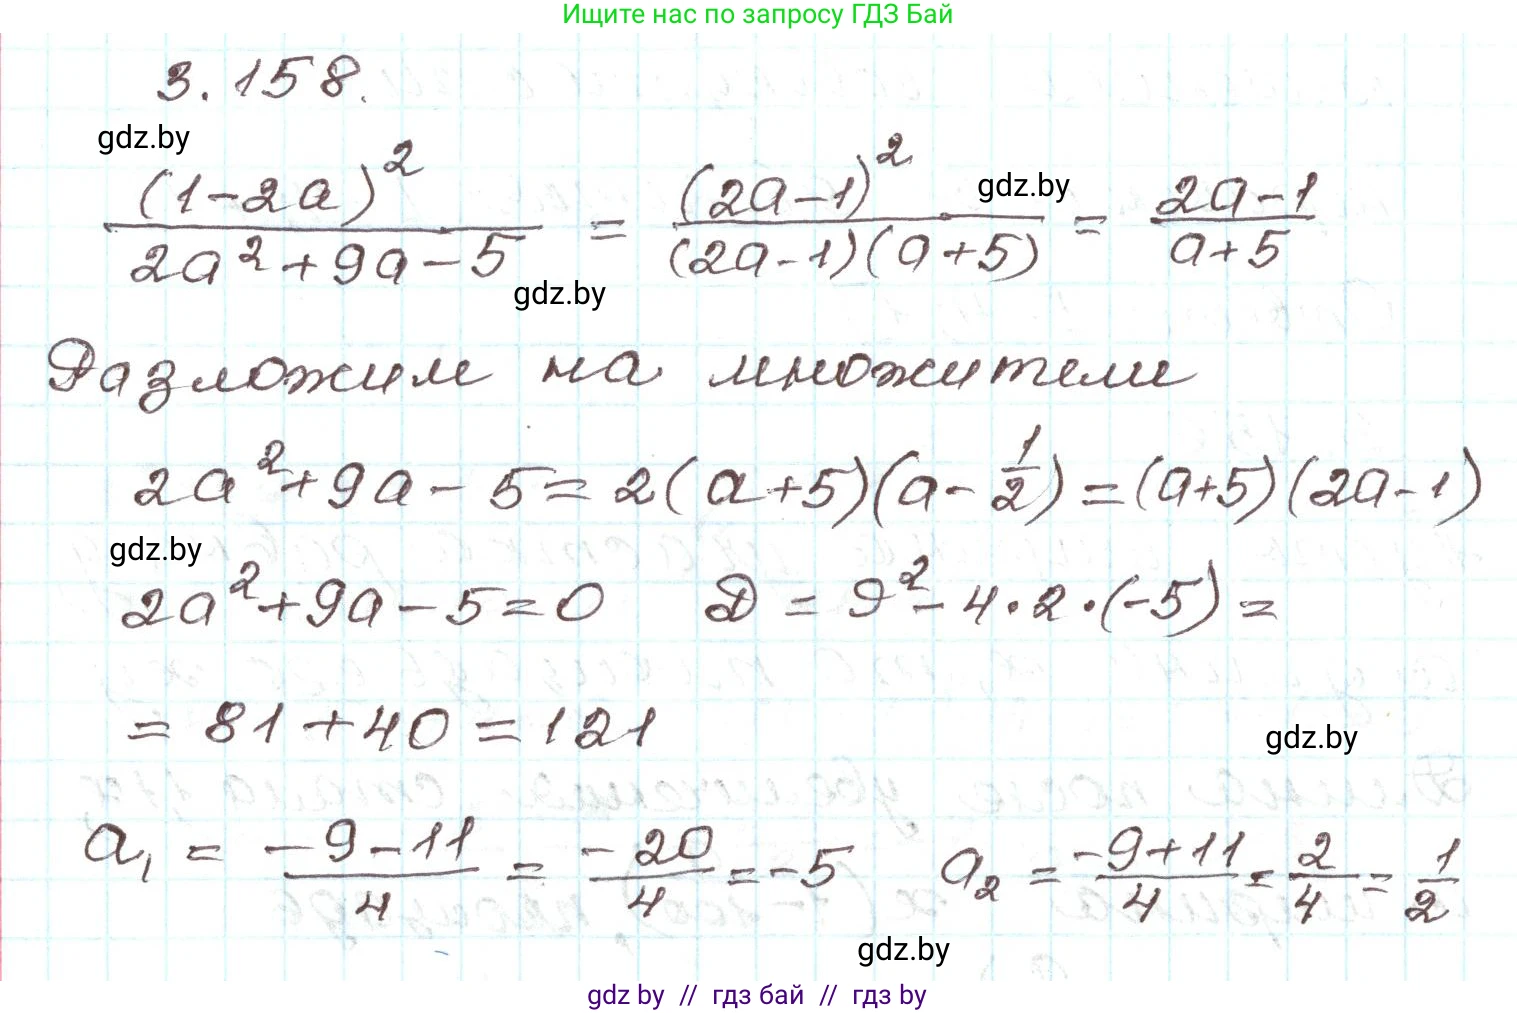 Ищите нас по запросу ГДЗ Бай
3.158.
gdz.by
(1-2a)²/(2a²+9a-5) = (2a-1)²/((2a-1)(a+5)) = (2a-1)/(a+5)
gdz.by
gdz.by
Разложим на множители
2a²+9a-5=2(a+5)(a-1/2)=(a+5)(2a-1)
gdz.by
2a²+9a-5=0 D=9²-4·2·(-5)=
=81+40=121
gdz.by
a₁ = (-9-11)/4 = -20/4 = -5 a₂ = (-9+11)/4 = 2/4 = 1/2
gdz.by
gdz by // гдз бай // гдз by